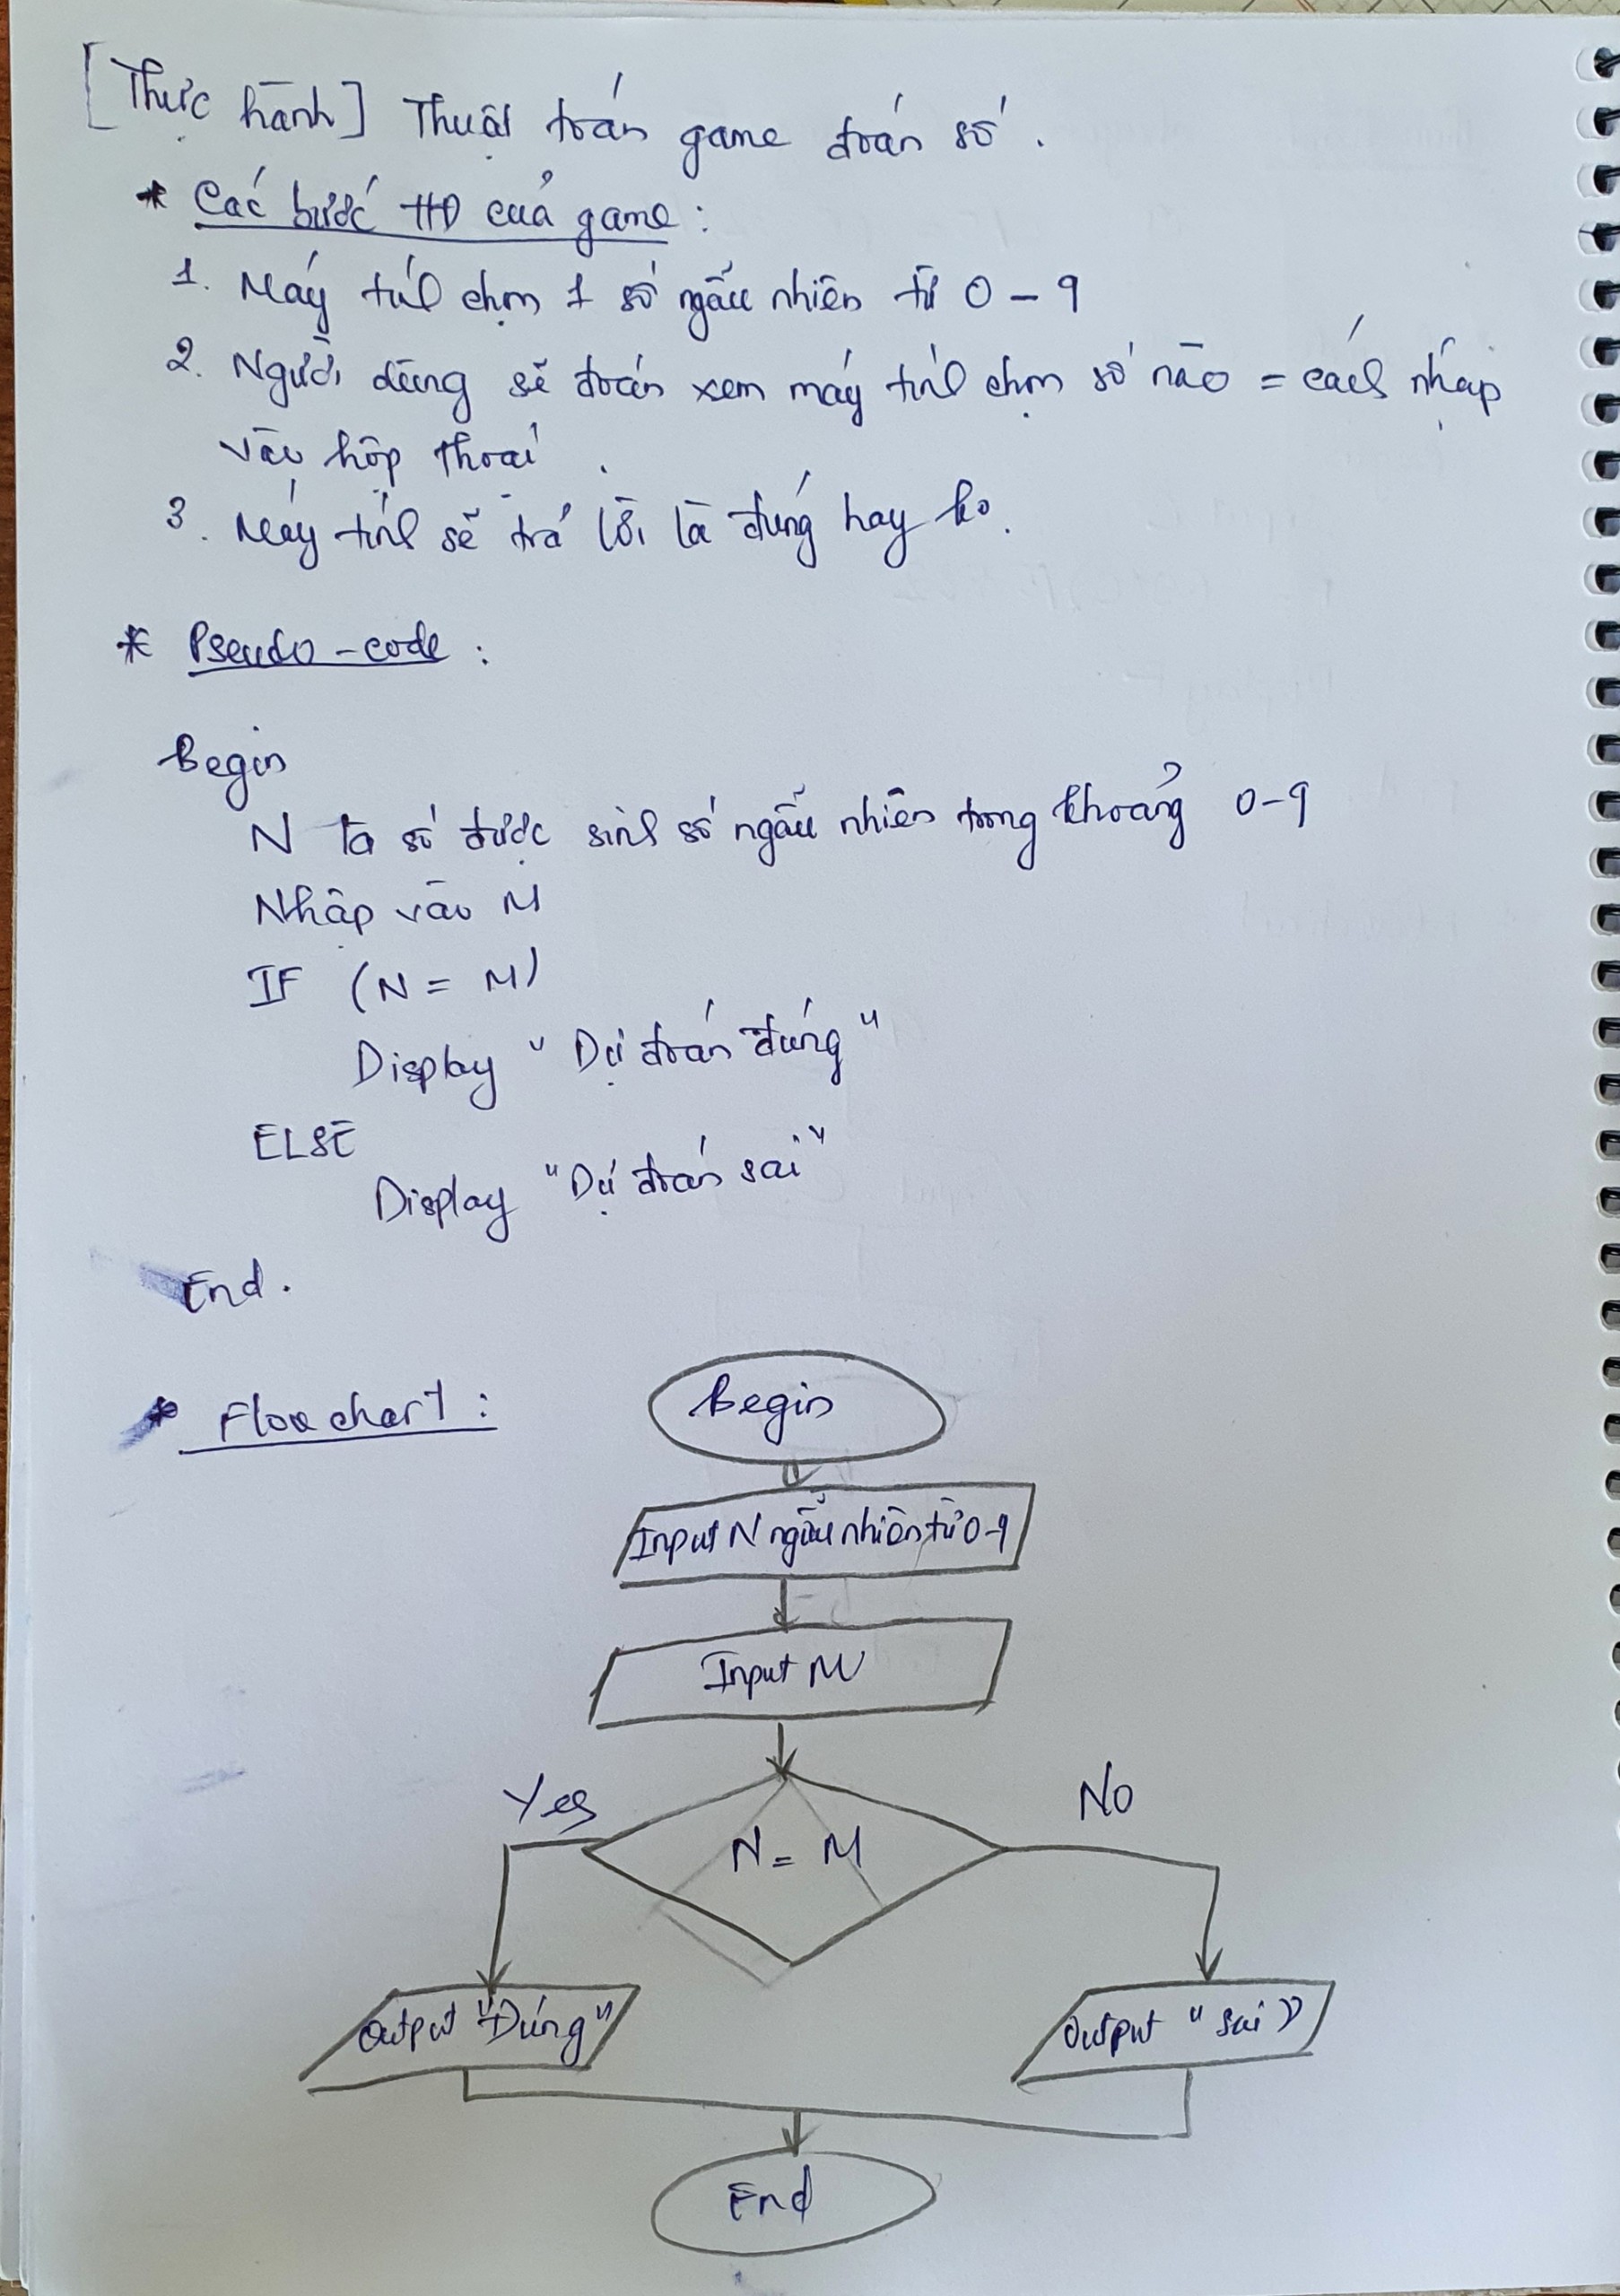 [Thực hành] Thuật toán game đoán số.
* Các bước HĐ của game:
1. Máy tính chọn 1 số ngẫu nhiên từ 0 - 9
2. Người dùng sẽ đoán xem máy tính chọn số nào = cách nhập
vào hộp thoại.
3. Máy tính sẽ trả lời là đúng hay ko.
* Pseudo-code:
Begin
N là số được sinh số ngẫu nhiên trong khoảng 0-9
Nhập vào M
IF (N = M)
Display "Dự đoán đúng"
ELSE
Display "Dự đoán sai"
End.
* Flowchart:
Begin
Input N ngẫu nhiên từ 0-9
Input M
Yes
No
N = M
Output "Đúng"
Output "sai"
End